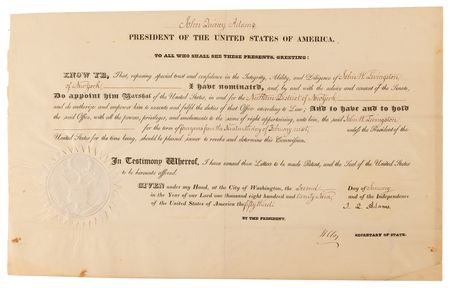 John Quincy Adams
PRESIDENT OF THE UNITED STATES OF AMERICA.
TO ALL WHO SHALL SEE THESE PRESENTS, GREETING:
KNOW YE, That, reposing special trust and confidence in the Integrity, Ability, and Diligence of John W. Livingston
of New York, I have nominated, and, by and with the advice and consent of the Senate,
Do appoint him Marshal of the United States, in and for the Northern District of New York
and do authorize and empower him to execute and fulfil the duties of that Office according to Law; And to have and to hold
the said Office, with all the powers, privileges, and emoluments to the same of right appertaining, unto him, the said John W. Livingston
for the term of four years from the day of February unless the President of the
United States for the time being, should be pleased sooner to revoke and determine this Commission.
In Testimony Whereof, I have caused these Letters to be made Patent, and the Seal of the United States
to be hereunto affixed.
GIVEN under my Hand, at the City of Washington, the Second Day of January
in the Year of our Lord one thousand eight hundred and twenty nine; and of the Independence
of the United States of America the fifty third. J. Q. Adams.
BY THE PRESIDENT.
H. Clay SECRETARY OF STATE.